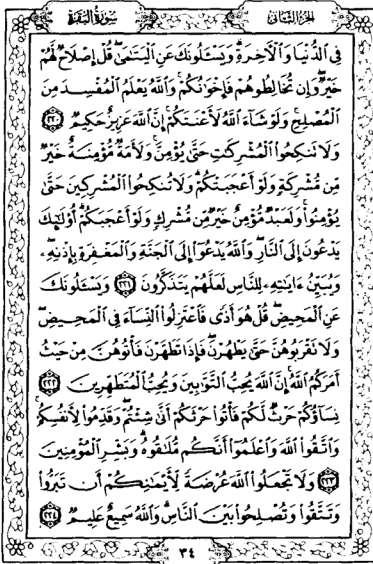 الجزء الثاني
سورة البقرة
فِى الدُّنْيَا وَالْآخِرَةِ وَيَسْـَٔلُونَكَ عَنِ الْيَتَٰمَىٰ قُلْ إِصْلَاحٌ لَّهُمْ
خَيْرٌ وَإِن تُخَالِطُوهُمْ فَإِخْوَٰنُكُمْ وَاللَّهُ يَعْلَمُ الْمُفْسِدَ مِنَ
الْمُصْلِحِ وَلَوْ شَآءَ اللَّهُ لَأَعْنَتَكُمْ إِنَّ اللَّهَ عَزِيزٌ حَكِيمٌ ٢٢٠
وَلَا تَنكِحُوا الْمُشْرِكَٰتِ حَتَّىٰ يُؤْمِنَّ وَلَأَمَةٌ مُّؤْمِنَةٌ خَيْرٌ
مِّن مُّشْرِكَةٍ وَلَوْ أَعْجَبَتْكُمْ وَلَا تُنكِحُوا الْمُشْرِكِينَ حَتَّىٰ
يُؤْمِنُوا وَلَعَبْدٌ مُّؤْمِنٌ خَيْرٌ مِّن مُّشْرِكٍ وَلَوْ أَعْجَبَكُمْ أُولَٰٓئِكَ
يَدْعُونَ إِلَى النَّارِ وَاللَّهُ يَدْعُوٓا إِلَى الْجَنَّةِ وَالْمَغْفِرَةِ بِإِذْنِهِۦ
وَيُبَيِّنُ ءَايَٰتِهِۦ لِلنَّاسِ لَعَلَّهُمْ يَتَذَكَّرُونَ ٢٢١ وَيَسْـَٔلُونَكَ
عَنِ الْمَحِيضِ قُلْ هُوَ أَذًى فَاعْتَزِلُوا النِّسَآءَ فِى الْمَحِيضِ
وَلَا تَقْرَبُوهُنَّ حَتَّىٰ يَطْهُرْنَ فَإِذَا تَطَهَّرْنَ فَأْتُوهُنَّ مِنْ حَيْثُ
أَمَرَكُمُ اللَّهُ إِنَّ اللَّهَ يُحِبُّ التَّوَّٰبِينَ وَيُحِبُّ الْمُتَطَهِّرِينَ ٢٢٢
نِسَآؤُكُمْ حَرْثٌ لَّكُمْ فَأْتُوا حَرْثَكُمْ أَنَّىٰ شِئْتُمْ وَقَدِّمُوا لِأَنفُسِكُمْ
وَاتَّقُوا اللَّهَ وَاعْلَمُوٓا أَنَّكُم مُّلَٰقُوهُ وَبَشِّرِ الْمُؤْمِنِينَ
٢٢٣ وَلَا تَجْعَلُوا اللَّهَ عُرْضَةً لِّأَيْمَٰنِكُمْ أَن تَبَرُّوا
وَتَتَّقُوا وَتُصْلِحُوا بَيْنَ النَّاسِ وَاللَّهُ سَمِيعٌ عَلِيمٌ ٢٢٤
٣٤